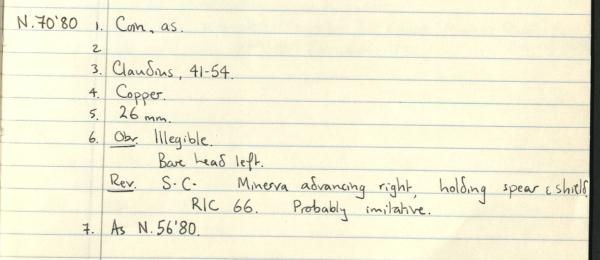 N.70'80 1. Coin, as.
2
3. Claudius, 41-54.
4. Copper.
5. 26 mm.
6. Obv. Illegible.
Bare head left.
Rev. S.C. Minerva advancing right, holding spear & shield.
RIC 66. Probably imitative.
7. As N.56'80.